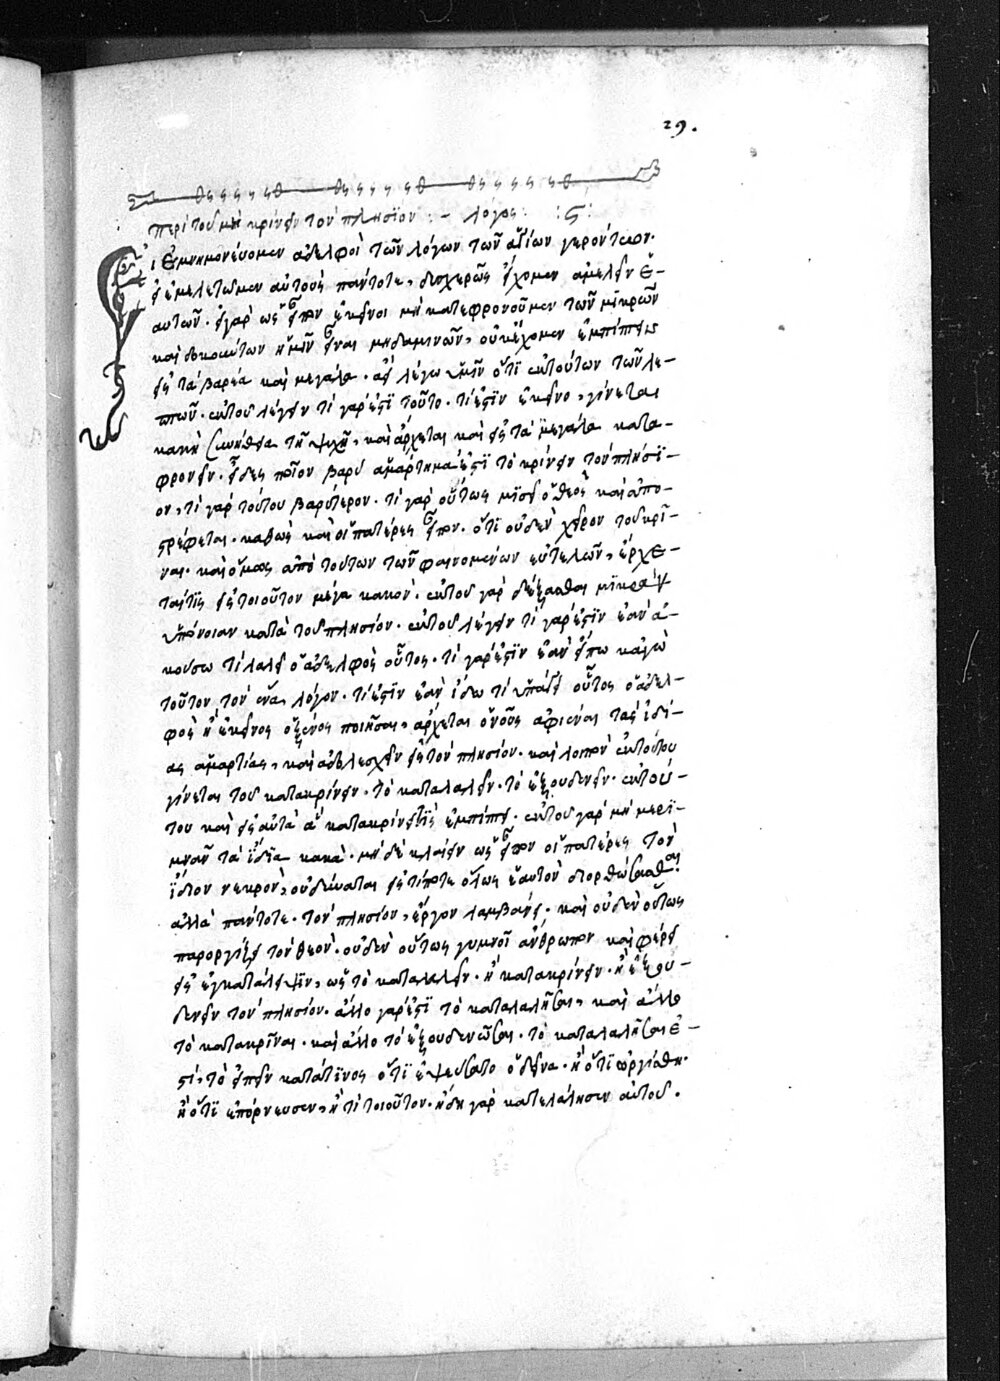 29.
περὶ τοῦ μὴ κρίνειν τὸν πλησίον :– λόγος: :ς:
εἰ ἐμνημονεύομεν ἀδελφοὶ τῶν λόγων τῶν ἁγίων γερόντων.
εἰ ἐμελετῶμεν αὐτοὺς πάντοτε, δυσχερῶς εἴχομεν ἀμελεῖν ἑ-
αυτῶν. εἰ γὰρ ὡς εἶπον ἐκεῖνοι μὴ κατεφρονοῦμεν τῶν μικρῶν
καὶ δοκούντων ἡμῖν εἶναι μηδαμινῶν, οὐκ εἴχομεν ἐμπίπτειν
εἰς τὰ βαρέα καὶ μεγάλα. ἀεὶ λέγω ὑμῖν ὅτι ἐκ τούτων τῶν λε-
πτῶν. ἐκ τοῦ λέγειν τί γάρ ἐστι τοῦτο. τί ἐστιν ἐκεῖνο, γίνεται
κακὴ συνήθεια τῇ ψυχῇ, καὶ ἄρχεται καὶ εἰς τὰ μεγάλα κατα-
φρονεῖν. εἶδες ποῖον βαρὺ ἁμάρτημα ἐστὶ τὸ κρίνειν τὸν πλησί-
ον, τί γὰρ τούτου βαρύτερον. τί γὰρ οὕτως μισεῖ ὁ θεὸς καὶ ἀπο-
στρέφεται. καθὼς καὶ οἱ πατέρες εἶπον. ὅτι οὐδὲν χεῖρον τοῦ κρῖ-
ναι. καὶ ὅμως ἀπὸ τούτων τῶν φαινομένων εὐτελῶν, ἔρχε-
ταί τις εἰς τοιοῦτον μέγα κακόν. ἐκ τοῦ γὰρ δέξασθαι μικρὰν
ὑπόνοιαν κατὰ τοῦ πλησίον. ἐκ τοῦ λέγειν τί γάρ ἐστιν ἐὰν ἀ-
κούσω τί λαλεῖ ὁ ἀδελφὸς οὗτος. τί γάρ ἐστιν ἐὰν εἴπω κἀγὼ
τοῦτον τὸν ἕνα λόγον. τί ἐστιν ἐὰν ἴδω τί ὑπάγει οὗτος ὁ ἀδελ-
φὸς ἢ ἐκεῖνος ὁ ξένος ποιῆσαι, ἄρχεται ὁ νοῦς ἀφιέναι τὰς ἰδί-
ας ἁμαρτίας, καὶ ἀδολεσχεῖν εἰς τὸν πλησίον. καὶ λοιπὸν ἐκ τούτου
γίνεται τοῦ κατακρίνειν. τὸ καταλαλεῖν. τὸ ἐξουδενεῖν. ἐκ τού-
του καὶ εἰς αὐτὰ ἃ κατακρίνει τις ἐμπίπτει. ἐκ τοῦ γὰρ μὴ μερι-
μνᾶν τὰ ἴδια κακὰ. μὴ δὲ κλαίειν ὡς εἶπον οἱ πατέρες τὸν
ἴδιον νεκρὸν, οὐ δύναται εἰς τίποτε ὅλως ἑαυτὸν διορθώσασθαι.
ἀλλὰ πάντοτε. τὸν πλησίον, ἔργον λαμβάνει. καὶ οὐδὲν οὕτως
παροργίζει τὸν θεὸν. οὐδὲν οὕτως γυμνοῖ ἄνθρωπον καὶ φέρει
εἰς ἐγκατάλειψιν, ὡς τὸ καταλαλεῖν. ἢ κατακρίνειν. ἢ ἐξου-
δενεῖν τὸν πλησίον. ἄλλο γάρ ἐστι τὸ καταλαλῆσαι, καὶ ἄλλο
τὸ κατακρῖναι. καὶ ἄλλο τὸ ἐξουδενῶσαι. τὸ καταλαλῆσαι ἐ-
στί, τὸ εἰπεῖν κατά τινος ὅτι ἐψεύσατο ὁ δεῖνα. ἢ ὅτι ὠργίσθη.
ἢ ὅτι ἐπόρνευσεν, ἢ τὶ τοιοῦτον. ἤδη γὰρ κατελάλησεν αὐτοῦ.